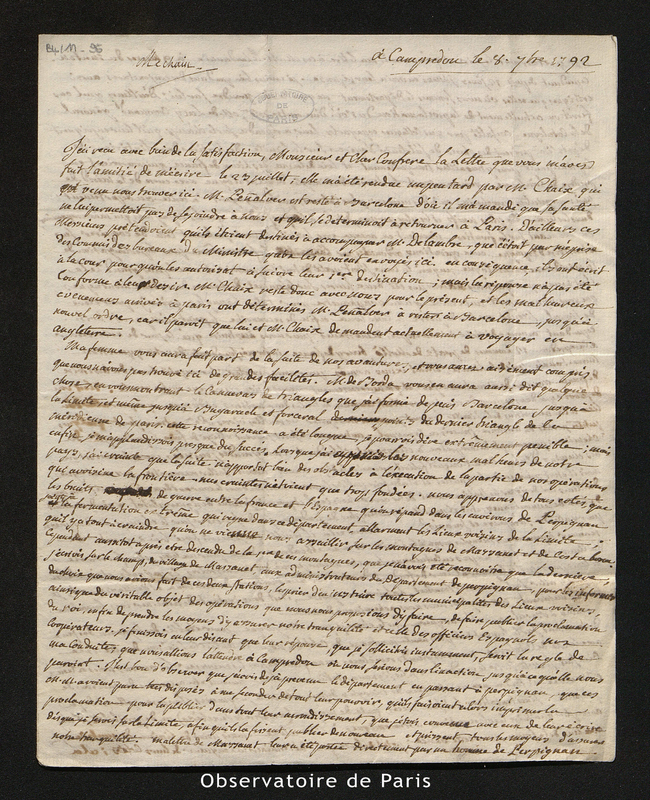 B4/11-96
Mechain
à Campredon le 8. 7bre 1792
OBSERVATOIRE DE PARIS
J'ai reçu avec bien de la satisfaction, Monsieur et Cher Confrere la Lettre que vous m'avez
fait l'amitié de m'écrire le 23 juillet. Elle m'a été rendue un peu tard par M. Chaix qui
est venu nous trouver ici. M. Penalver est resté à Barcelone d'où il m'a mandé que sa santé
ne lui permettoit pas de se joindre à nous et qu'il se déterminoit à retourner à Paris. D'ailleurs ces
Messieurs prétendoient qu'ils étoient destinés à accompagner M. Delambre, que c'étoit par méprise
des Commis des bureaux du Ministre qu'on les avoient envoyés ici. en conséquence, ils ont écrit
à la Cour pour qu'on les autorisat à suivre leur 1ere destination; mais la réponse n'a pas été
Conforme à leurs desirs. M. Chaix reste donc avec nous pour le présent, et les malheureux
évenemens arrivés à paris ont déterminés M. Penalver à rester à Barcelone jusqu'à
nouvel ordre, car il paroit que lui et M. Chaix demandent actuellement à voyager en
angleterre.
Ma femme vous aura fait part de la suite de nos avantures, et vous aurez aisément compris
que nous n'avons pas trouvé ici de grandes facilités. M. de Borda vous en aura aussi dit quelque
chose en vous montrant le Canevas de triangles que j'ai formé depuis Barcelone jusqu'à
la Limite, et même jusqu'à Bugarach et forceral du dernier triangle de la
méridienne de paris. cette reconnoissance a été longue, je pourrois dire extrêmement penible; mais
enfin je m'applaudissois presque du succès, lorsque j'ai les nouveaux malheurs de notre
pays. j'ai craint que la suite n'apportat bien des obstacles à l'éxécution de la partie de nos opérations
qui avoisine la frontière. nos craintes n'étoient que trop fondées. nous apprenons de tous cotés que
les bruits de guerre entre la france et l'Espagne qu'on répand dans les environs de Perpignan
et la fermentation extrême qui regne dans ce département allarment les Lieux voisins de la Limite
qu'il y a tout à craindre qu'on ne vienne nous assaillir sur les montagnes de Massanet et de Costabona.
Cependant aussitot après être descendu de la 1ere de ces montagnes, que je n'avois été reconnoitre que la derniere,
j'écrivis sur le champ du village de Massanet aux administrateurs du Département de perpignan, pour les informer
du choix que nous avions fait de ces deux stations, les prier d'en instruire toutes les municipalités des Lieux voisins,
ainsi que du véritable objet des opérations que nous nous proposions d'y faire, de faire publier la proclamation
du roi, enfin de prendre les moyens d'y assurer notre tranquilité et celle des officiers Espagnols nos
Coopérateurs. je finissois en leur disant que leur réponse, que je sollicitois instamment, seroit la regle de
ma conduite, que nous allions l'attendre à Campredon où nous serions dans l'inaction jusqu'à ce qu'elle nous
parvint. Il est bon d'observer que j'avois déja prevenu le département en passant à perpignan, que ces
M.rs avoient paru très disposés à me seconder de tout leur pouvoir, qu'ils faisoient alors imprimer la
proclamation pour la publier dans tout leur arrondissement, que j'étois convenu avec eux de leur écrire
dès que je serois sur la Limite, afin qu'ils la fissent publier de nouveau et prissent tous les moyens d'assurer
notre tranquilité. ma lettre de Massanet leur a été portée directement par un homme de Perpignan
Observatoire de Paris